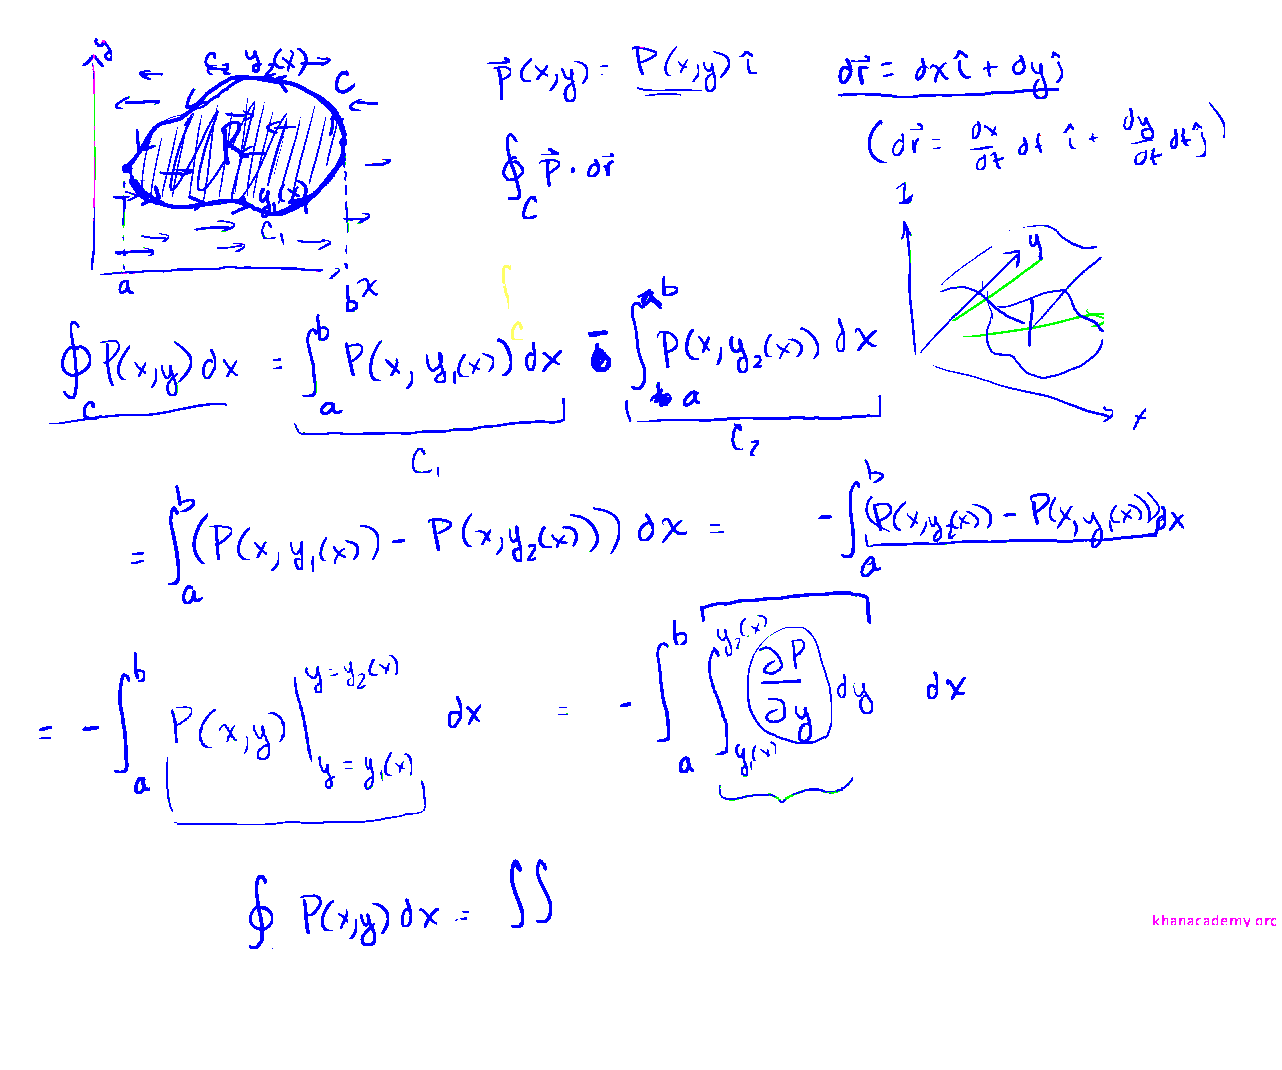 y
C₂ y₂(x)
C
R
y₁(x)
C₁
a
b x
P⃗(x,y) = P(x,y) î
dr⃗ = dx î + dy ĵ
(dr⃗ = dx/dt dt î + dy/dt dt ĵ)
∮_C P⃗ · dr⃗
z
y
x
∮_C P(x,y) dx = ∫_a^b P(x, y₁(x)) dx - ∫_a^b P(x, y₂(x)) dx
C₁
C₂
= ∫_a^b (P(x, y₁(x)) - P(x, y₂(x))) dx = - ∫_a^b (P(x, y₂(x)) - P(x, y₁(x))) dx
= - ∫_a^b P(x,y) |_{y = y₁(x)}^{y = y₂(x)} dx = - ∫_a^b ∫_{y₁(x)}^{y₂(x)} ∂P/∂y dy dx
∮ P(x,y) dx = ∬
khanacademy org